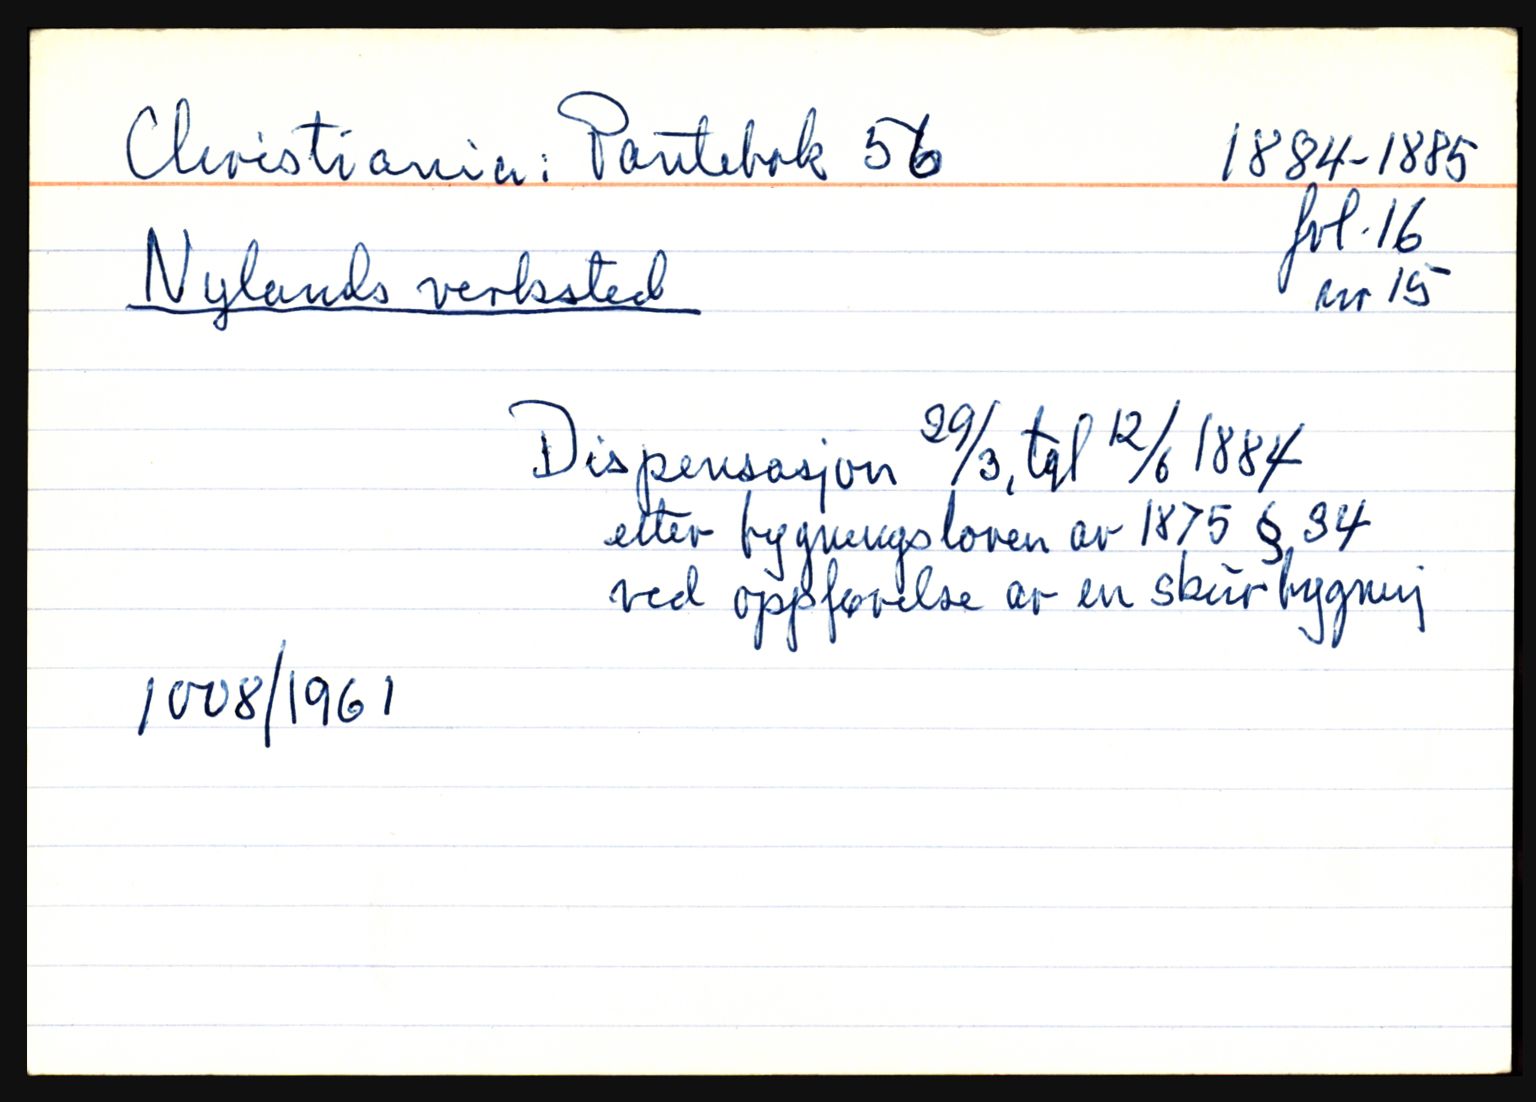 Christiania: Pantebok 56 1884-1885
fol. 16
Nylands verksted
nr 15
Dispensasjon 29/3, tgl 12/6 1884
etter bygningsloven av 1875 § 34
ved oppførelse av en skurbygning
1008/1961